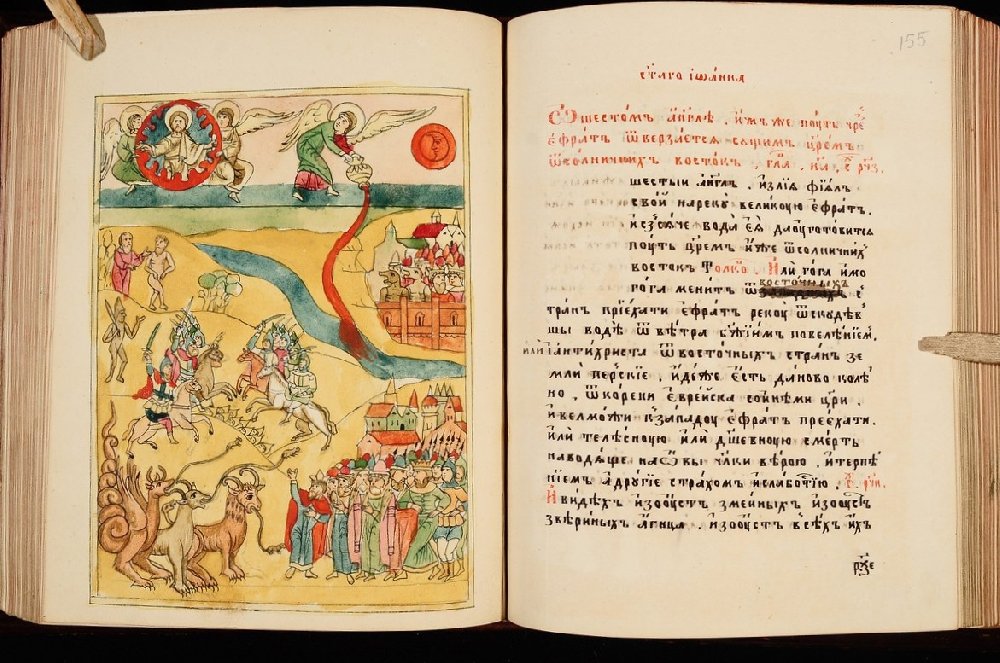 155
ст҃аго іѡ́анна
Ѡ шестомъ а҆нг҃лѣ, и҆мъже поуть чре
е҆фратъ ѿверза́ется сꙋщимъ цр҃емъ
ѿ солничныхъ востокъ, гла, н҃а, с рꙋ,
шестыи анг҃лъ, и҆злїя̀ фїялъ
свой на рекꙋ̀ великоую е҆фратъ,
и҆ и҆зсяче вода̀ е҆я̀ да оуготовится
поуть цр҃емъ и҆́же ѿ солничныхъ
востокъ Толко, И҆ли тога и҆мо
гога мени́тъ ѿ восточныхъ с
транъ прїехати е҆фратъ рекоу ѿскꙋдѣв
шы водѣ ѿ вѣтра бж҃їимъ повелѣ́нїемъ,
или а҆нтихриста ѿ восточныхъ странъ зе
мли перскїе, и҆дѣже е҆сть даново колѣ
но, ѿ корени е҆вреиска со и҆нѣми цр҃и,
и҆ велможи к западоу е҆фратъ преехати,
и҆ли телѣсноую и҆ли дш҃евноую смерть
наводяще на ѡвы чл҃ки вѣрою, и҆ терпѣ
нїемъ а҆ другїе страхомъ и҆ слаботїю,
И҆ видѣхъ и҆зо оустъ змеиныхъ и҆зо оустъ
звѣриныхъ а҆ пица, и҆зо оустъ всѣхъ и҆хъ
рч҃е